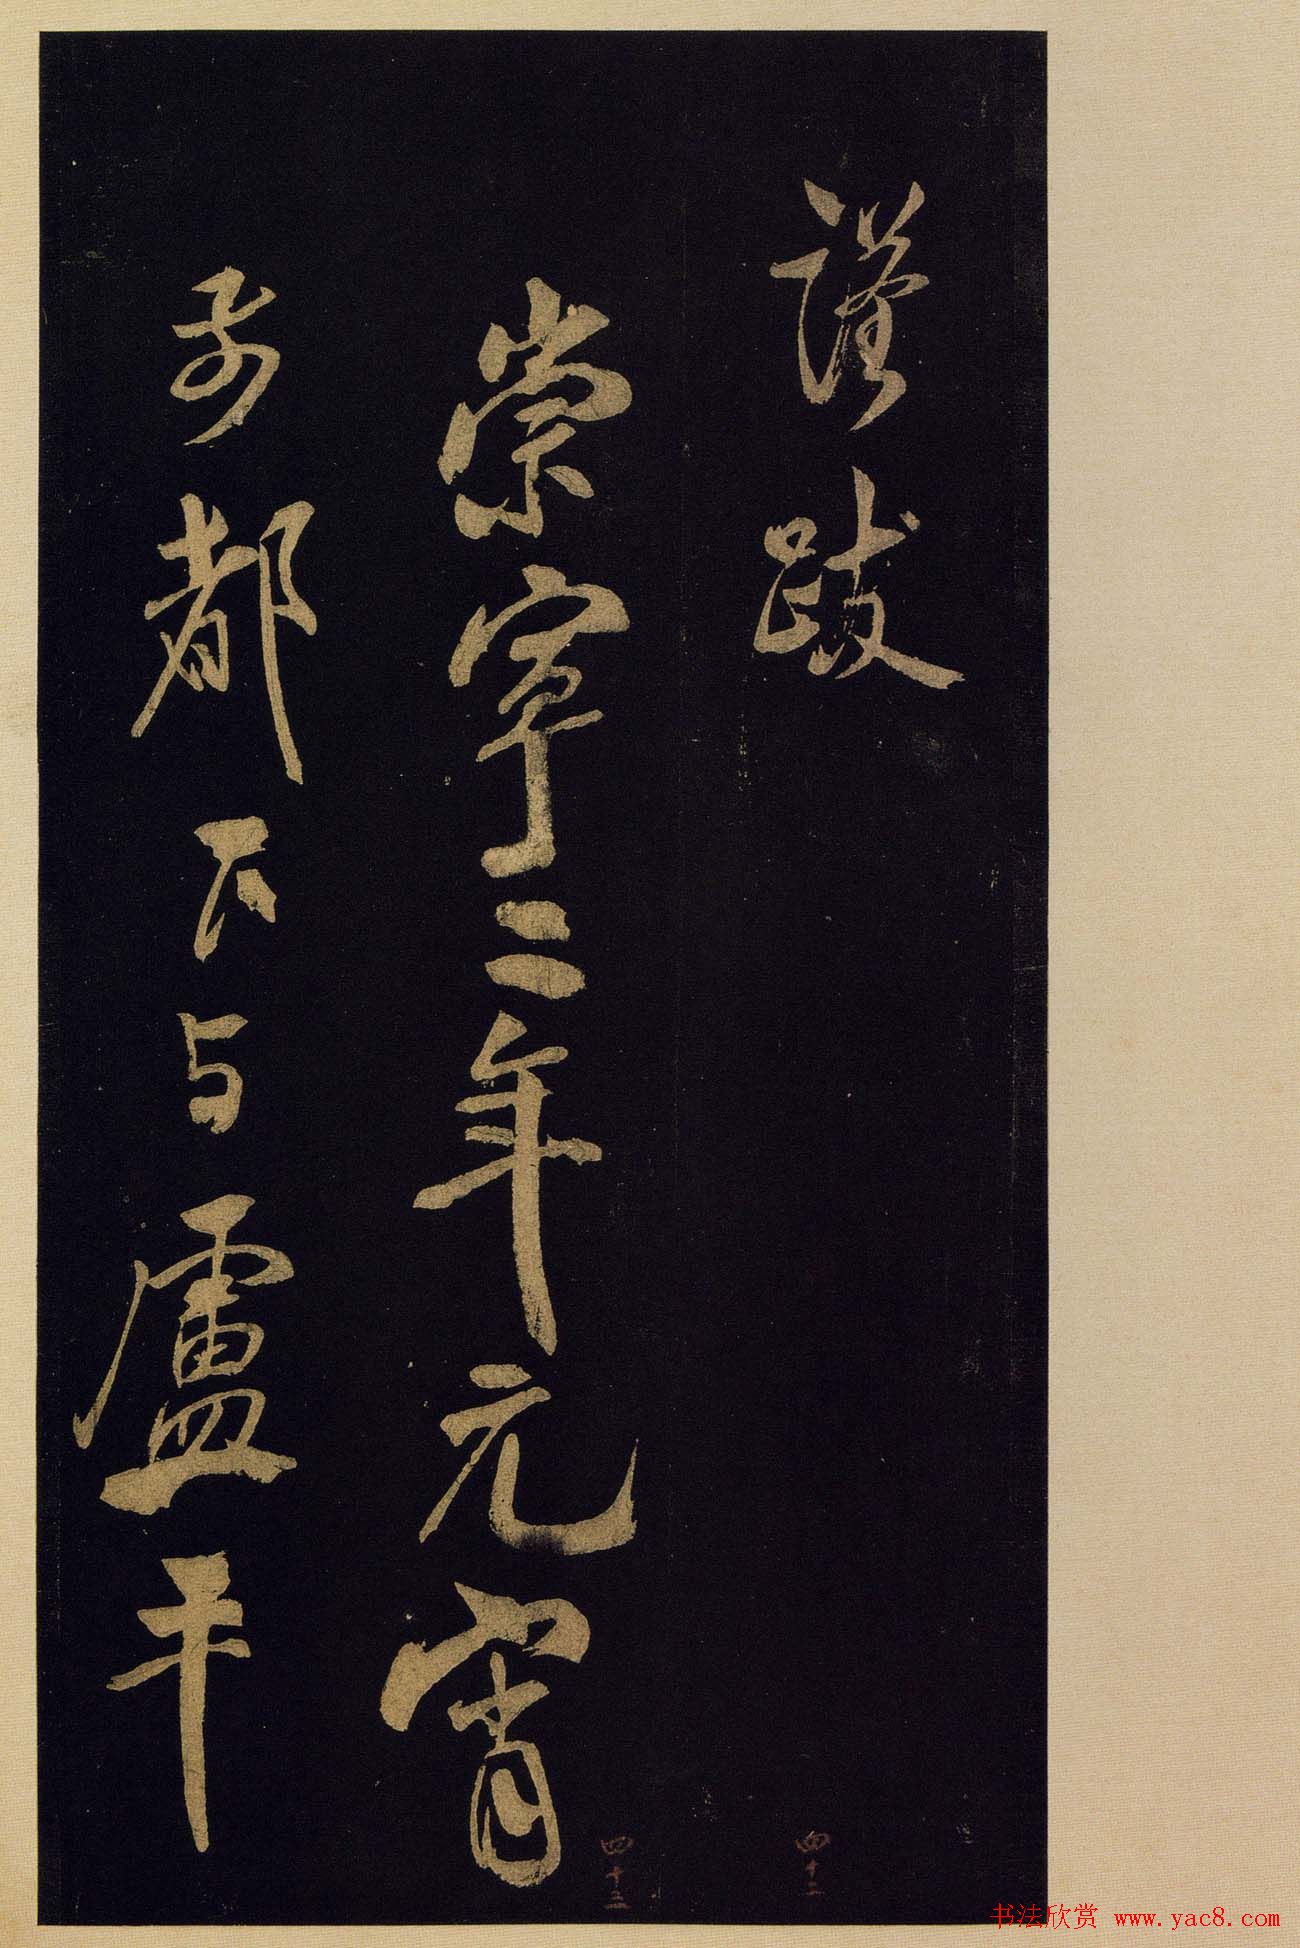 謹跋
崇寧二年元宵
都下与盧平
四十二
四十三
书法欣赏 www.yac8.com